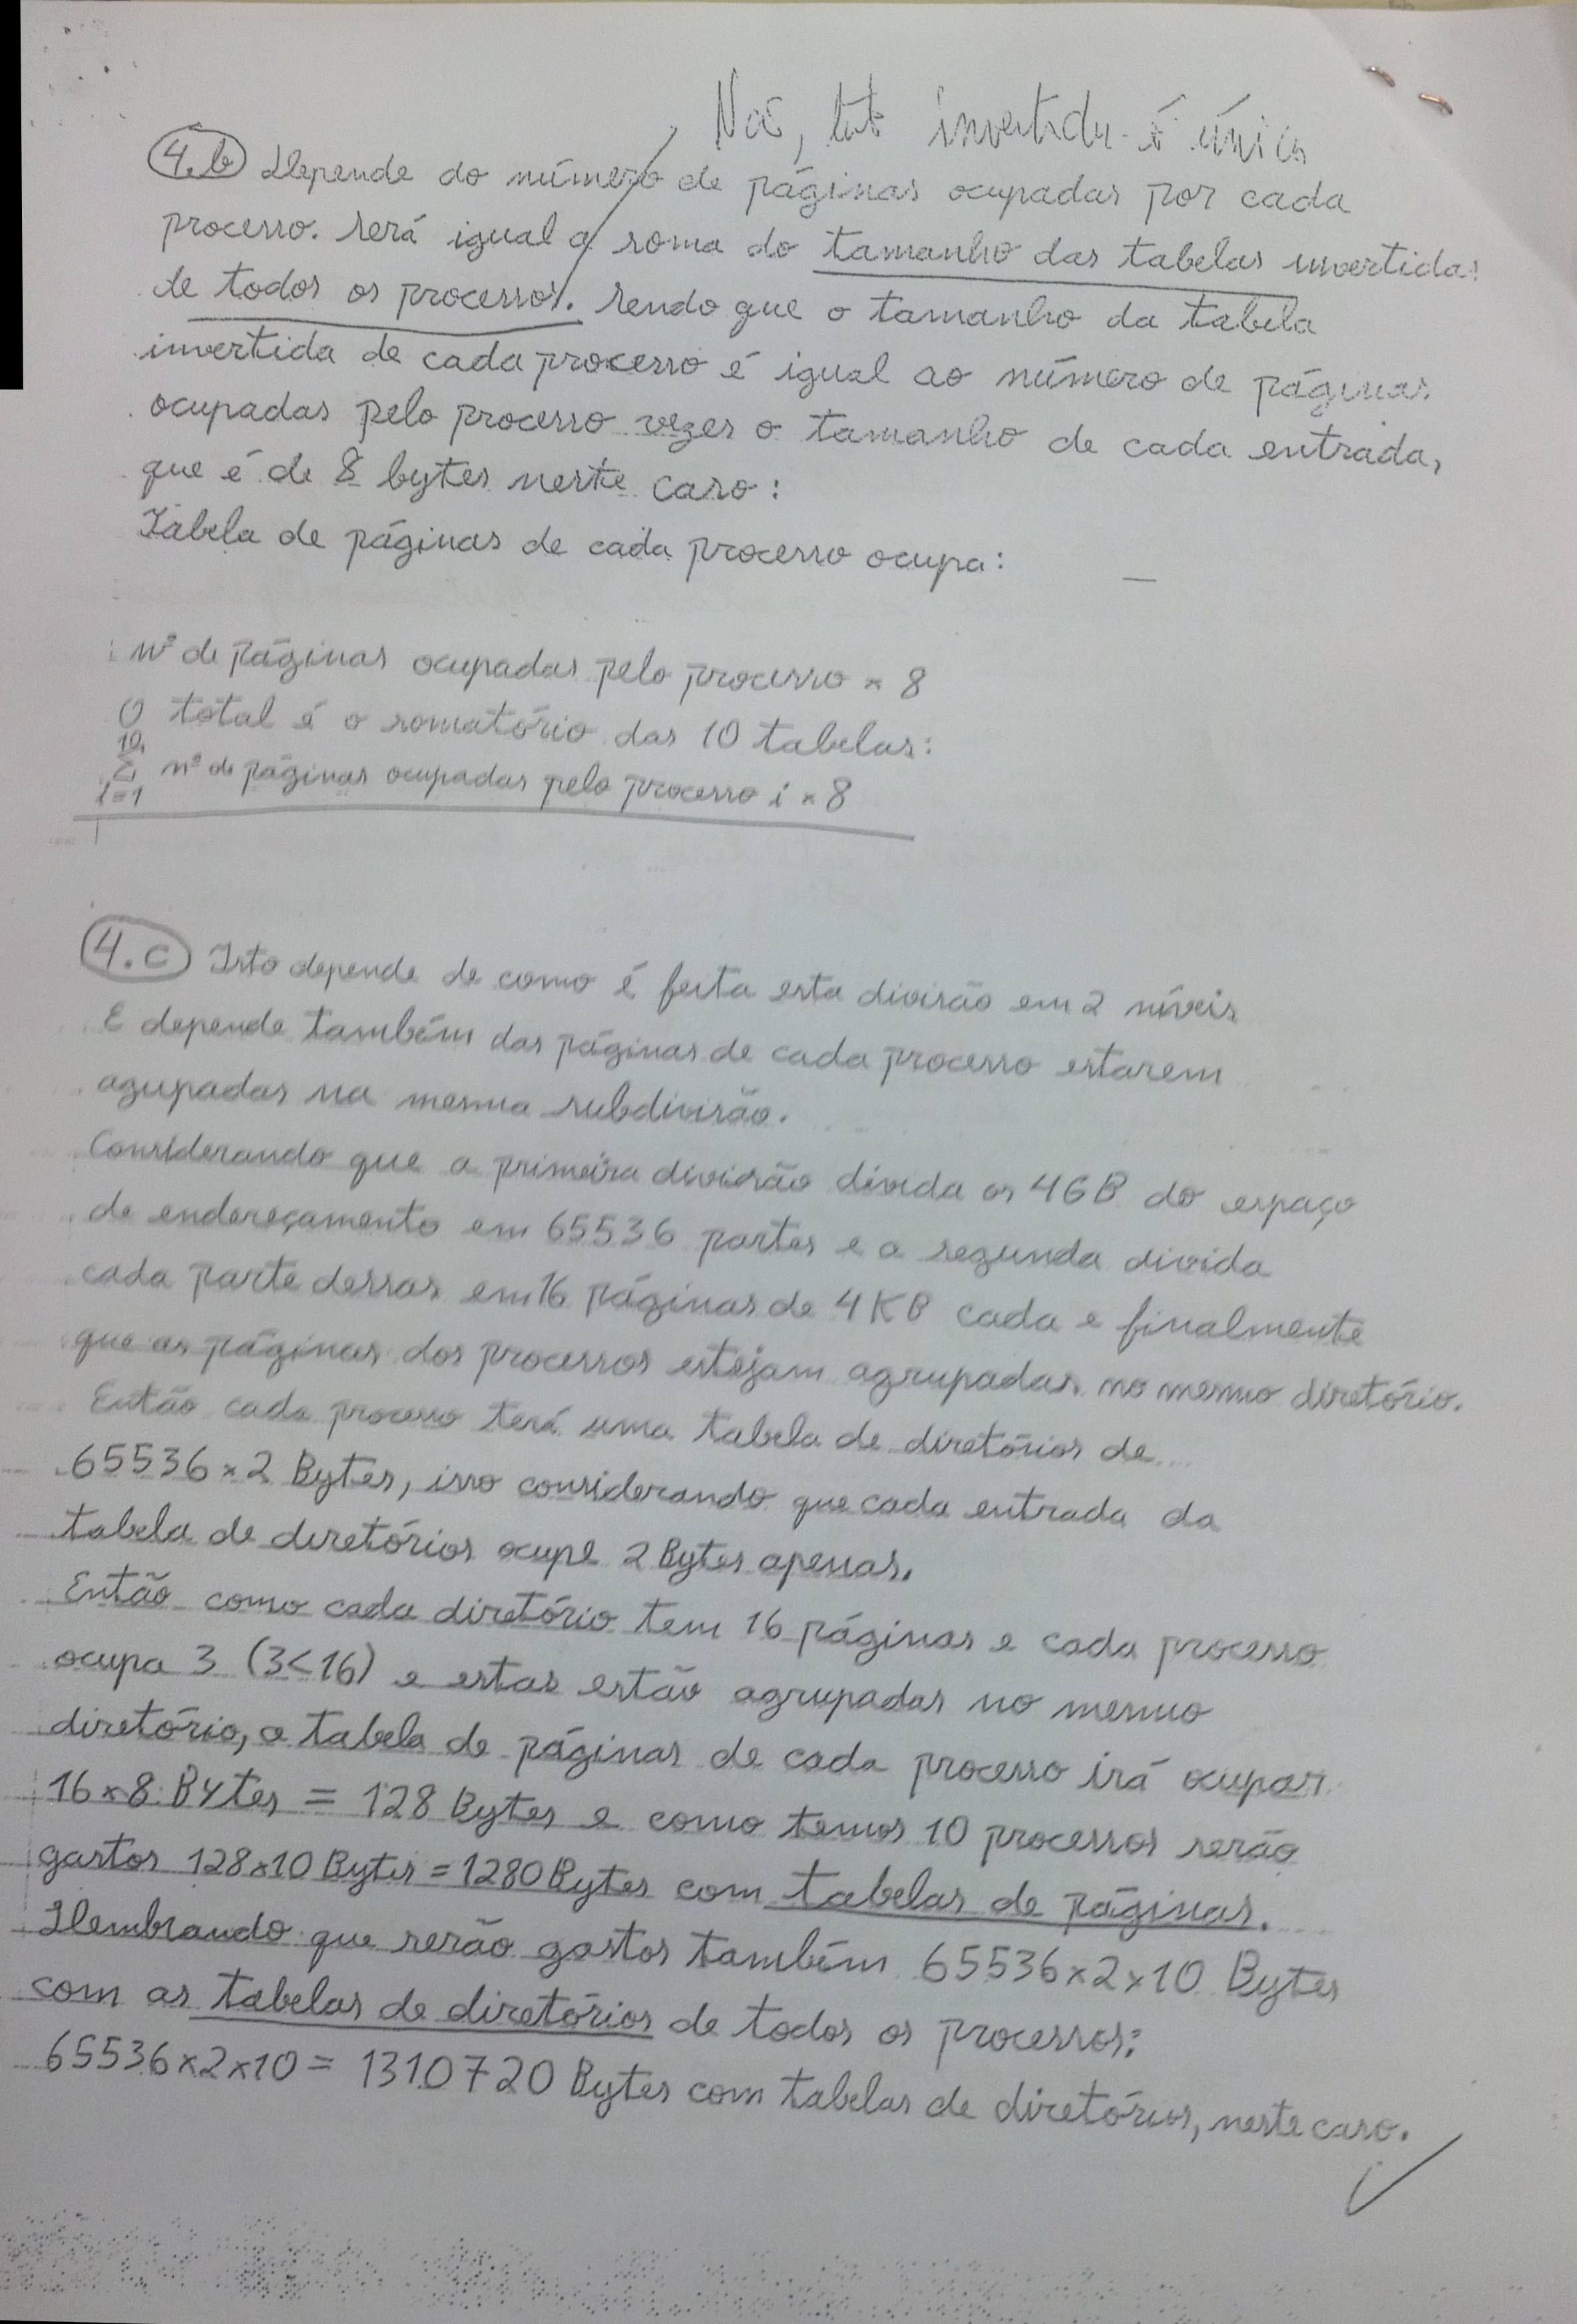 Não, tab invertida é única
4.b Depende do número de páginas ocupadas por cada
processo. Será igual a soma do tamanho das tabelas invertidas
de todos os processos. Sendo que o tamanho da tabela
invertida de cada processo é igual ao número de páginas
ocupadas pelo processo vezes o tamanho de cada entrada,
que é de 8 bytes neste caso:
Tabela de páginas de cada processo ocupa:
nº de páginas ocupadas pelo processo × 8
O total é o somatório das 10 tabelas:
10
Σ nº de páginas ocupadas pelo processo i × 8
i=1
4.c Isto depende de como é feita esta divisão em 2 níveis
E depende também das páginas de cada processo estarem
agupadas na mesma subdivisão.
Considerando que a primeira divisão divida os 4GB do espaço
de endereçamento em 65536 partes e a segunda divida
cada parte dessas em 16 páginas de 4KB cada e finalmente
que as páginas dos processos estejam agrupadas no mesmo diretório.
Então cada processo terá uma tabela de diretórios de
65536×2 Bytes, isso considerando que cada entrada da
tabela de diretórios ocupe 2 Bytes apenas.
Então como cada diretório tem 16 páginas e cada processo
ocupa 3 (3<16) e estas estão agrupadas no mesmo
diretório, a tabela de páginas de cada processo irá ocupar
16×8 Bytes = 128 Bytes e como temos 10 processos serão
gastos 128×10 Bytes = 1280 Bytes com tabelas de páginas.
Lembrando que serão gastos também 65536×2×10 Bytes
com as tabelas de diretórios de todos os processos:
65536×2×10 = 1310720 Bytes com tabelas de diretórios, neste caso.